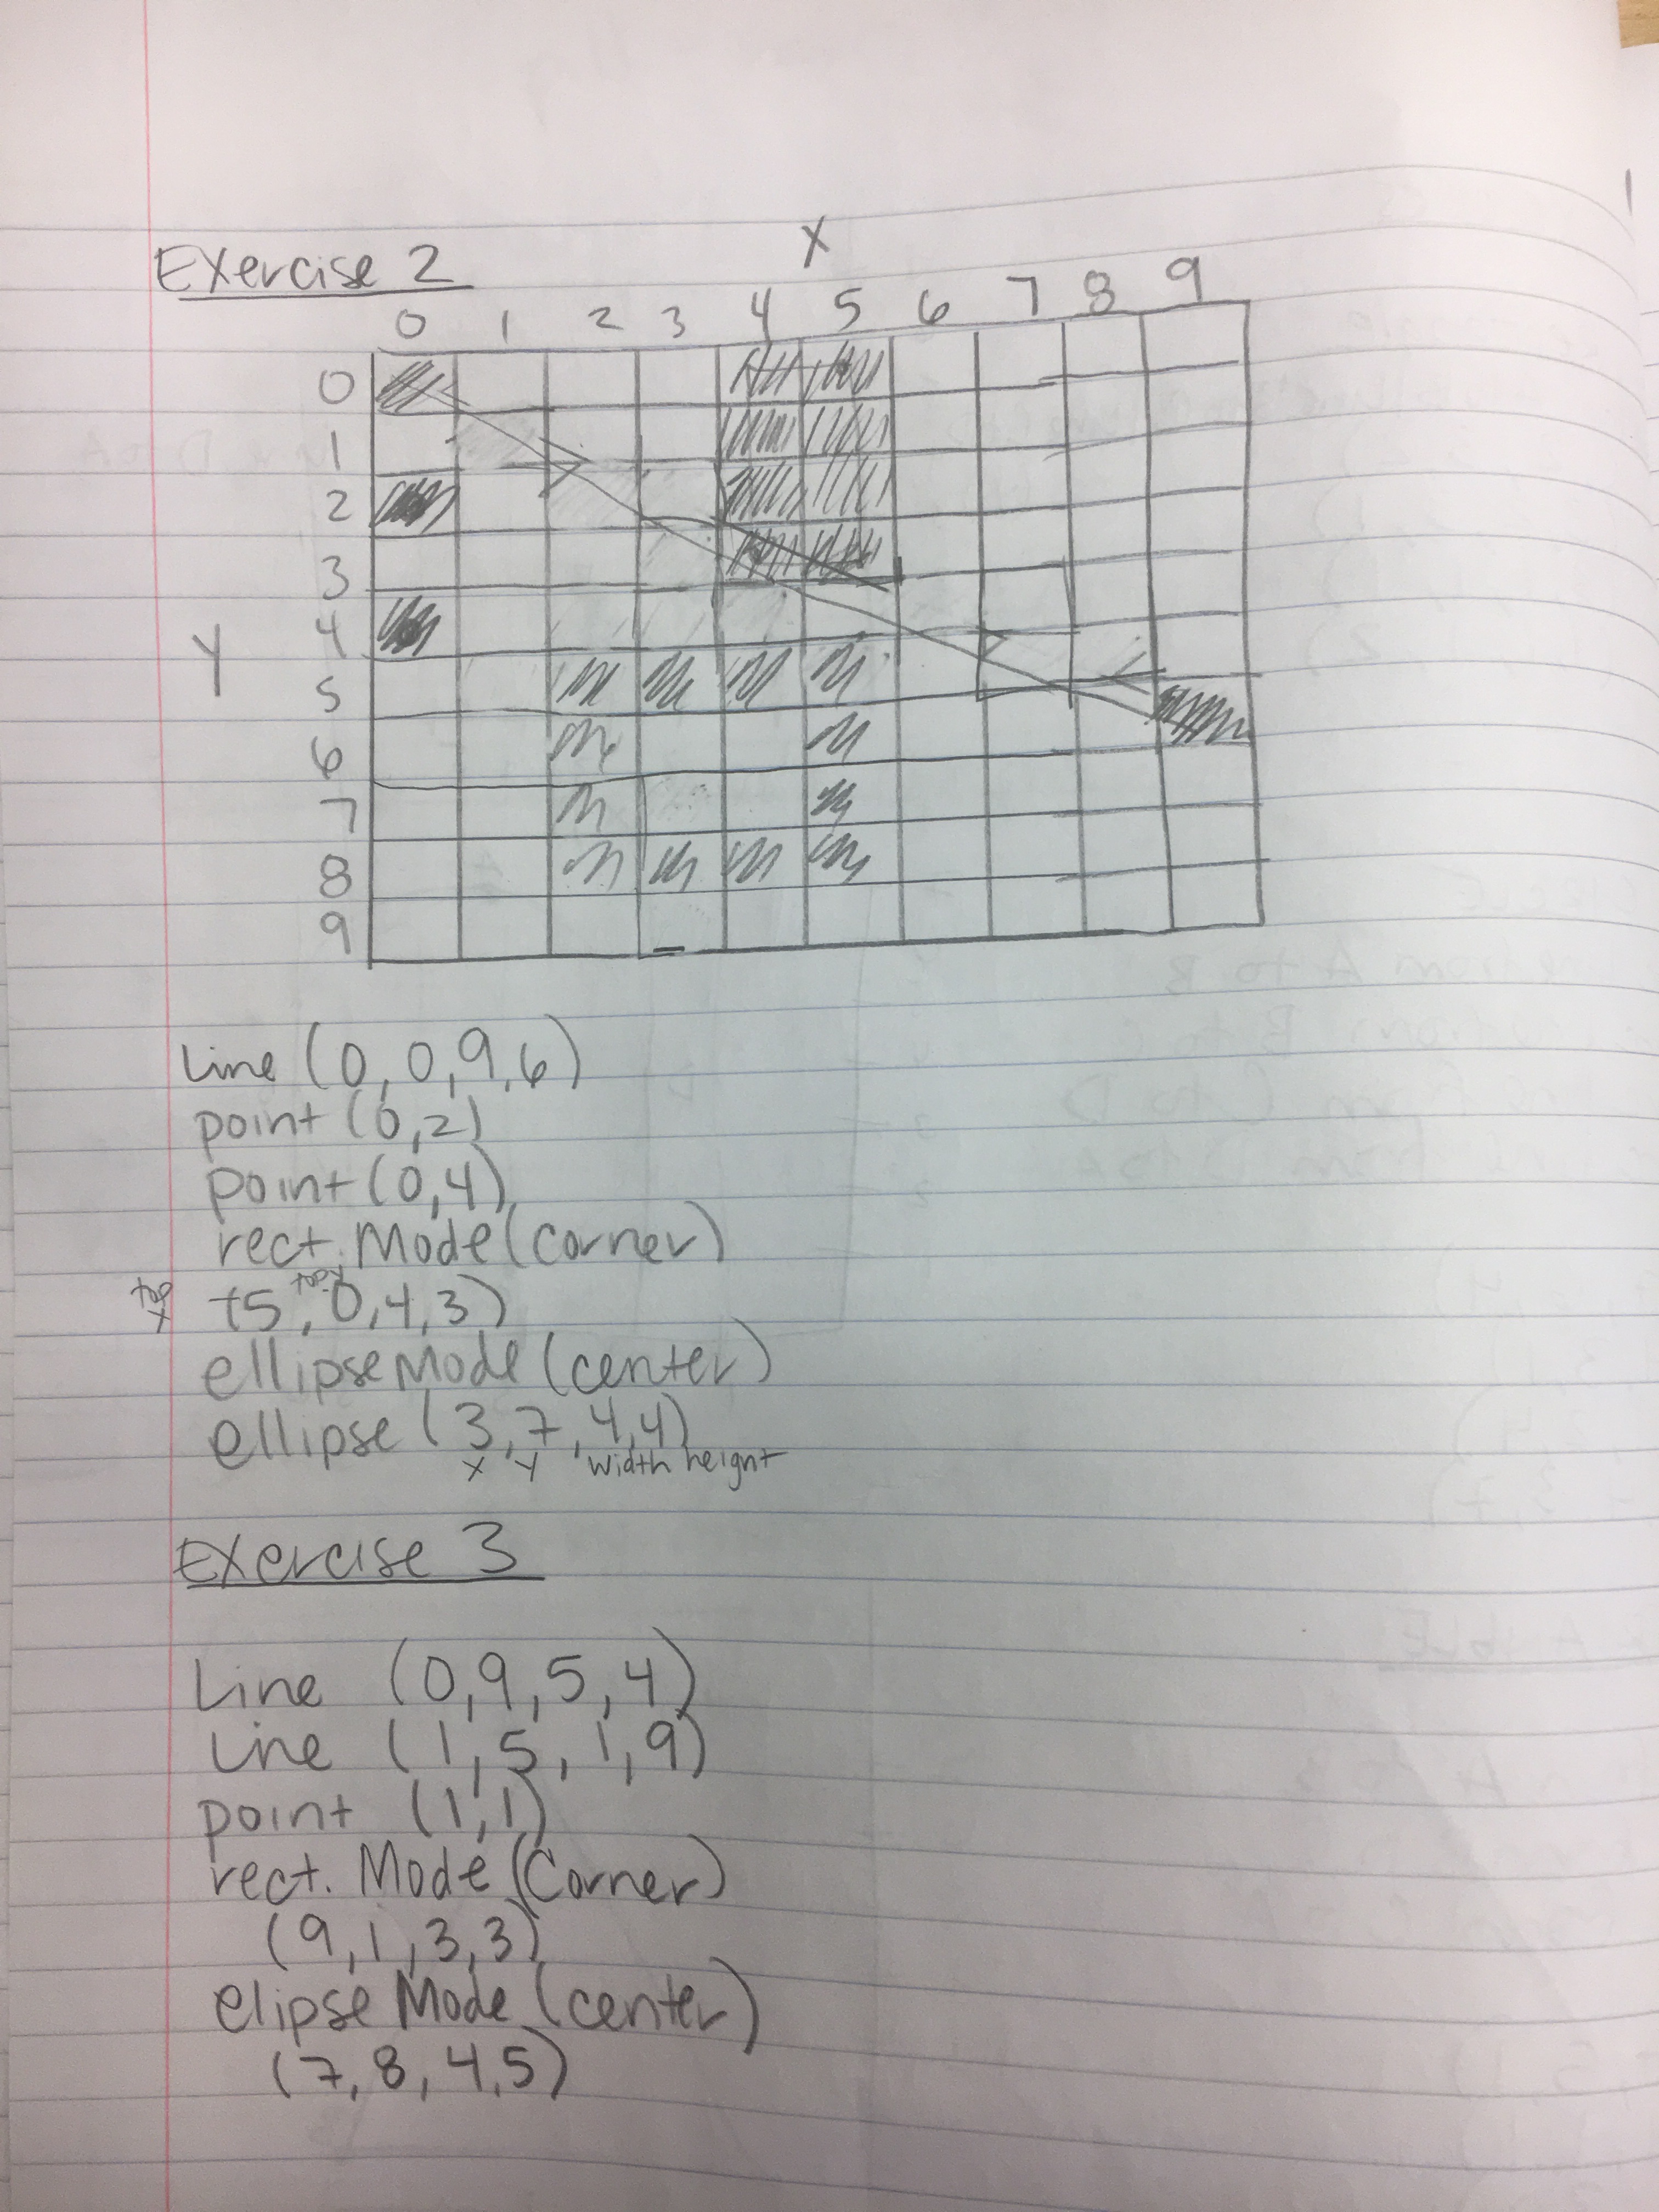 Exercise 2
X
0 1 2 3 4 5 6 7 8 9
0
1
2
3
Y 4
5
6
7
8
9
Line (0,0,9,6)
point (0,2)
point (0,4)
rect. Mode (corner)
top x (5, top y 0,4,3)
ellipse Mode (center)
ellipse (3,7,4,4)
x y width height
Exercise 3
Line (0,9,5,4)
Line (1,5,1,9)
point (1,1)
rect. Mode (Corner)
(9,1,3,3)
elipse Mode (center)
(7,8,4,5)